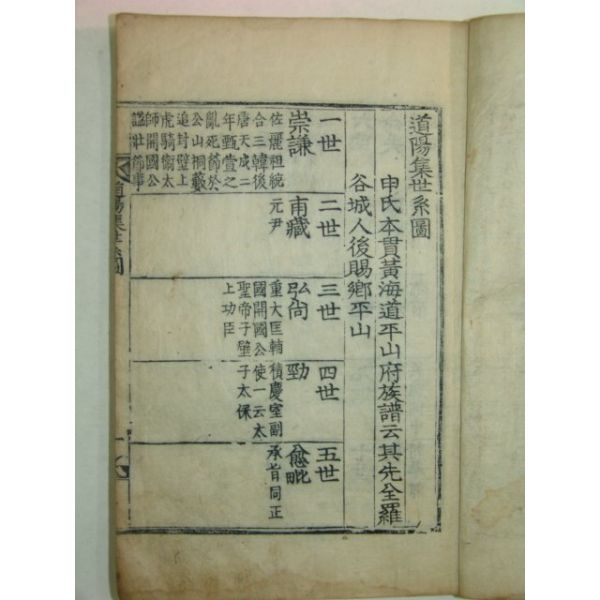 道陽集世系圖
申氏本貫黃海道平山府族譜云其先全羅
谷城人後賜鄉平山
一世
崇謙
佐麗祖統
合三韓後
唐天成二
年甄萱之
亂死節於
公山桐藪
追封壁上
虎騎衛太
師開國公
諡壯節事
二世
甫藏
元尹
三世
弘尙
重大匡輔
國開國公
聖帝子壁
上功臣
四世
勁
積慶室副
使一云太
子太保
五世
愈毗
承旨同正
道陽集世系圖
一